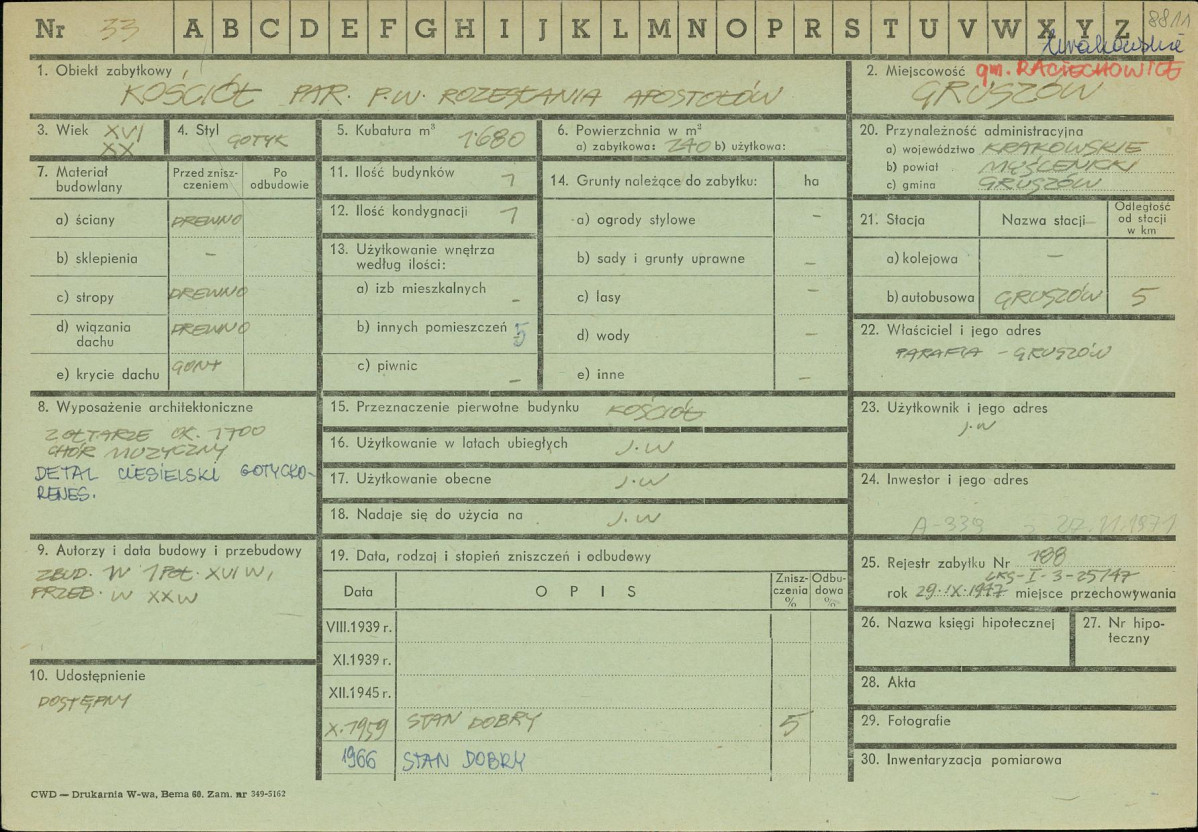 Nr 33 A B C D E F G H I J K L M N O P R S T U V W X Y Z 8811
krakowskie
1. Obiekt zabytkowy
KOŚCIÓŁ PAR. P.W. ROZESŁANIA APOSTOŁÓW
2. Miejscowość gm. RACIECHOWICE
GRUSZÓW
3. Wiek XVI
XX
4. Styl GOTYK
5. Kubatura m³ 1680
6. Powierzchnia w m²
a) zabytkowa: 240 b) użytkowa:
20. Przynależność administracyjna
a) województwo KRAKOWSKIE
b) powiat MYŚLENICKI
c) gmina GRUSZÓW
7. Materiał budowlany
Przed zniszczeniem
Po odbudowie
a) ściany DREWNO
b) sklepienia –
c) stropy DREWNO
d) wiązania dachu DREWNO
e) krycie dachu GONT
11. Ilość budynków 1
12. Ilość kondygnacji 1
13. Użytkowanie wnętrza
według ilości:
a) izb mieszkalnych –
b) innych pomieszczeń 5
c) piwnic –
14. Grunty należące do zabytku: ha
a) ogrody stylowe –
b) sady i grunty uprawne –
c) lasy –
d) wody –
e) inne –
21. Stacja Nazwa stacji Odległość od stacji w km
a) kolejowa –
b) autobusowa GRUSZÓW 5
22. Właściciel i jego adres
PARAFIA – GRUSZÓW
8. Wyposażenie architektoniczne
2 OŁTARZE OK. 1700
CHÓR MUZYCZNY
DETAL CIESIELSKI GOTYCKO-
RENES.
15. Przeznaczenie pierwotne budynku KOŚCIÓŁ
16. Użytkowanie w latach ubiegłych J.W
17. Użytkowanie obecne J.W
18. Nadaje się do użycia na J.W
23. Użytkownik i jego adres
J.W
24. Inwestor i jego adres
A-339 z 22.11.1971
9. Autorzy i data budowy i przebudowy
ZBUD. W 1 POŁ. XVI W,
PRZEB. W XX W
19. Data, rodzaj i stopień zniszczeń i odbudowy
Data OPIS Zniszczenia % Odbudowa %
VIII.1939 r.
XI.1939 r.
XII.1945 r.
X.1959 STAN DOBRY 5
1966 STAN DOBRY
25. Rejestr zabytku Nr 188
LKS-I-3-25/47
rok 29.IX.1947 miejsce przechowywania
26. Nazwa księgi hipotecznej
27. Nr hipoteczny
28. Akta
29. Fotografie
30. Inwentaryzacja pomiarowa
10. Udostępnienie
DOSTĘPNY
CWD — Drukarnia W-wa, Bema 60. Zam. nr 349-5162